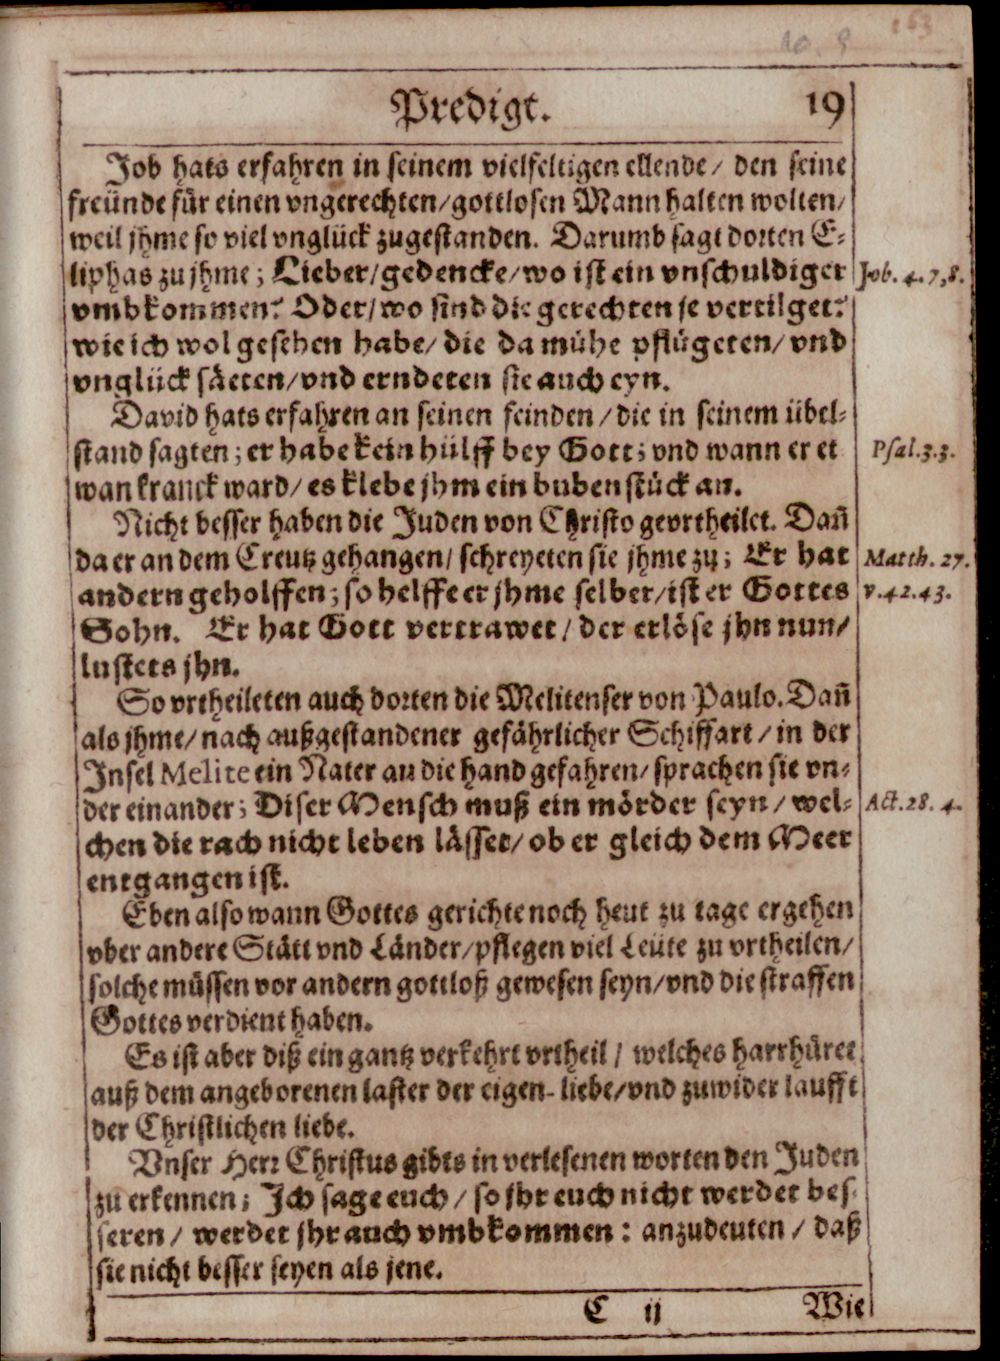 Predigt. 19
Job hats erfahren in seinem vielfeltigen ellende/ den seine
freünde für einen vngerechten/gottlosen Mann halten wolten/
weil jhme so viel vnglück zugestanden. Darumb sagt dorten E-
liphas zu jhme; Lieber/gedencke/wo ist ein vnschuldiger
Job. 4. 7,8.
vmbkommen? Oder/wo sind die gerechten je vertilget?
wie ich wol gesehen habe/ die da mühe pflügeten/ vnd
vnglück säeten/vnd erndeten sie auch eyn.
David hats erfahren an seinen feinden/die in seinem übel-
stand sagten; er habe kein hülff bey Gott; vnd wann er et
Psal.3.3.
wan kranck ward/ es klebe jhm ein bubenstück an.
Nicht besser haben die Juden von Christo geurtheilet. Dañ
da er an dem Creutz gehangen/ schreyeten sie jhme zu; Er hat
Matth. 27.
andern geholffen; so helffe er jhme selber/ist er Gottes
v.42.43.
Sohn. Er hat Gott vertrawet/ der erlöse jhn nun/
lustets jhn.
So vrtheileten auch dorten die Melitenser von Paulo. Dañ
als jhme/ nach außgestandener gefährlicher Schiffart/ in der
Insel Melite ein Nater an die hand gefahren/ sprachen sie vn-
der einander; Diser Mensch muß ein mörder seyn/ wel-
Act.28. 4.
chen die rach nicht leben lässet/ ob er gleich dem Meer
entgangen ist.
Eben also wann Gottes gerichte noch heut zu tage ergehen
vber andere Stätt vnd Länder/pflegen viel Leüte zu vrtheilen/
solche müssen vor andern gottloß gewesen seyn/vnd die straffen
Gottes verdient haben.
Es ist aber diß ein gantz verkehrt vrtheil/ welches harrhüret
auß dem angeborenen laster der eigen-liebe/vnd zuwider laufft
der Christlichen liebe.
Vnser Herr Christus gibts in verlesenen worten den Juden
zu erkennen; Ich sage euch/ so jhr euch nicht werdet bes-
seren/ werdet jhr auch vmbkommen: anzudeuten/ daß
sie nicht besser seyen als jene.
C ij Wie